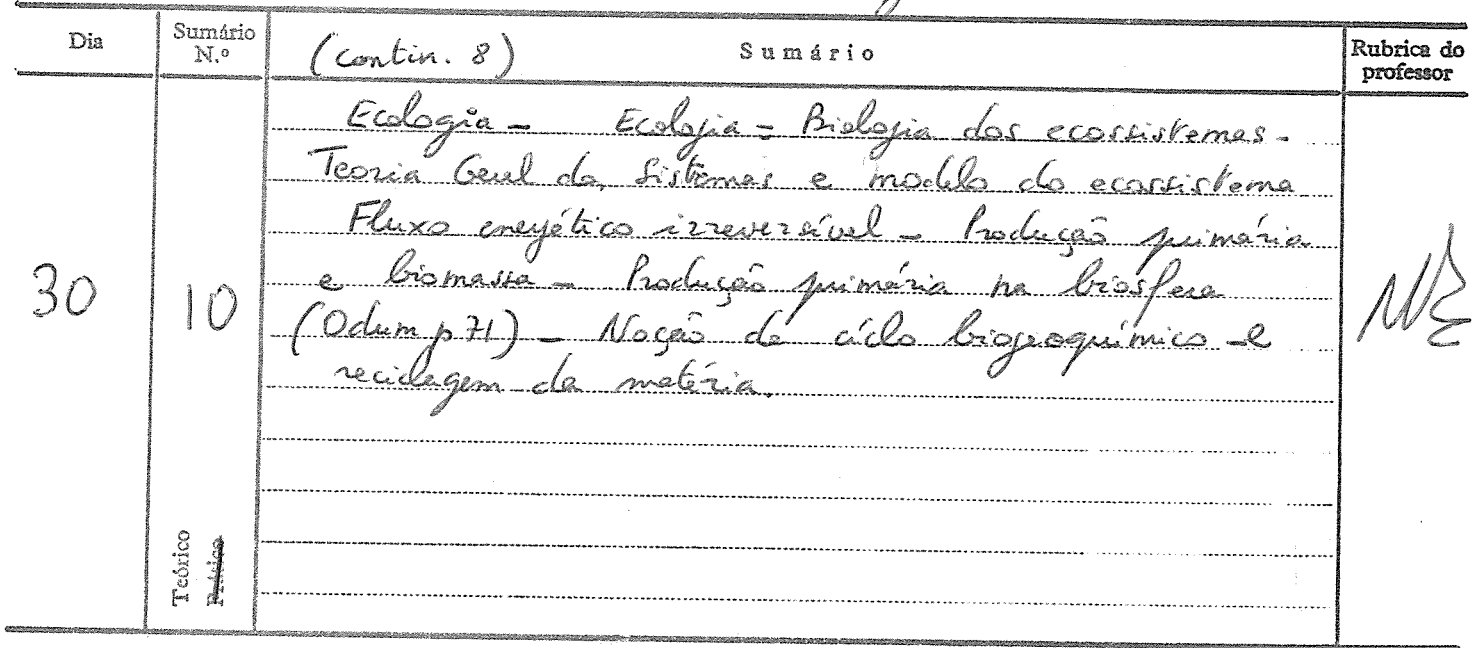 Dia
Sumário N.º
(contin. 8)
Sumário
Rubrica do professor
30
10
Ecologia - Ecologia = Biologia dos ecossistemas -
Teoria Geral dos Sistemas e modelo do ecossistema
Fluxo energético irreversível - Produção primária
e biomassa - Produção primária na biosfera
(Odum p 71) - Noção de ciclo biogeoquímico e
reciclagem da matéria.
Teórico
Prático